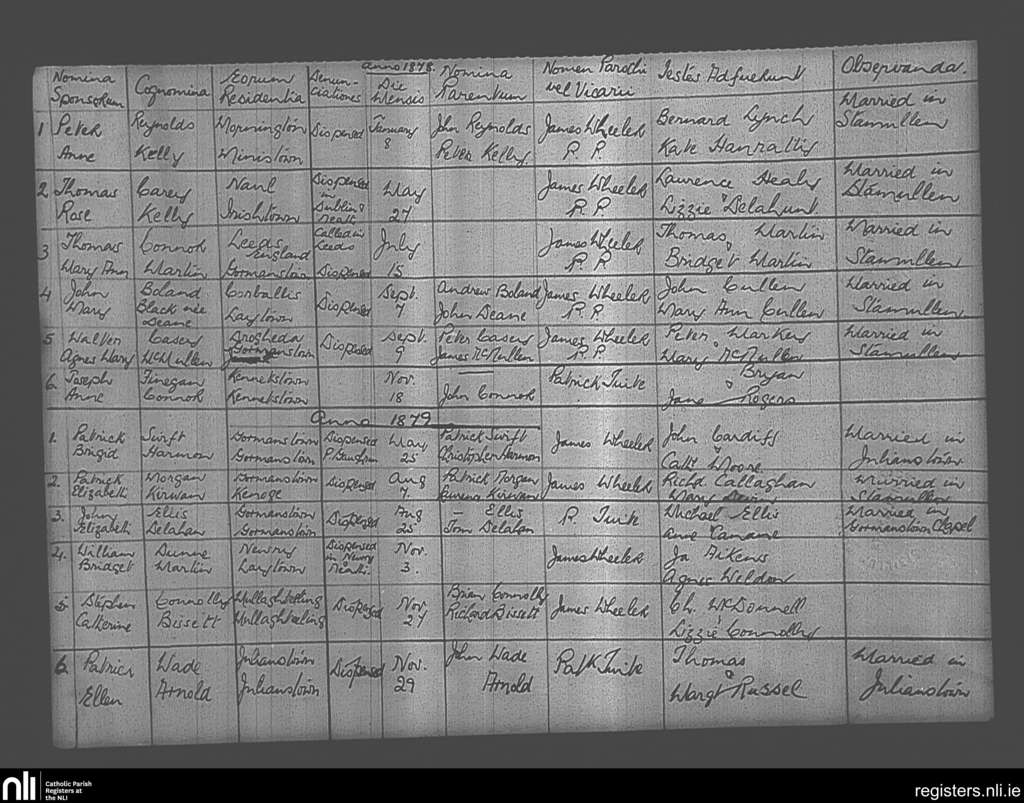 Anno 1878.
Nomina Sponsorum Cognomina Eorum Residentia Denunciationes Die Mensis Nomina Parentum Nomen Parochi vel Vicarii Testes Adfuerunt Observanda.
1 Peter Reynolds Mornington Dispensed January 8 John Reynolds James Wheeler Bernard Lynch Married in
Anne Kelly Ministown Peter Kelly P. P. Kate Hanratty Stamullen
2 Thomas Carey Naul Dispensed in Dublin & Meath May James Wheeler Laurence Healy Married in
Rose Kelly Irishtown 27 P. P. Lizzie Delahunt Stamullen
3 Thomas Connor Leeds England Called in Leeds July James Wheeler Thomas Martin Married in
Mary Ann Martin Gormanstown Dispensed 15 P. P. Bridget Martin Stamullen
4 John Boland Corballis Dispensed Sept. Andrew Boland James Wheeler John Cullen Married in
Mary Black née Deane Laytown 7 John Deane P. P. Mary Ann Cullen Stamullen
5 Walter Casey Drogheda Dispensed Sept. Peter Casey James Wheeler Peter Markey Married in
Agnes Mary McMullen Gormanstown 9 James McMullen P. P. Mary McMullen Stamullen
6. Joseph Finegan Kennetstown Nov. — Patrick Tuite Bryan
Anne Connor Kennetstown 18 John Connor Jane Rogers
Anno 1879
1. Patrick Swift Gormanstown Dispensed May Patrick Swift James Wheeler John Cardiff Married in
Brigid Harmon Gormanstown 25 Christopher Harmon Cath Moore Julianstown
2. Patrick Morgan Gormanstown Dispensed Aug Patrick Morgan James Wheeler Richd. Callaghan Married in
Elizabeth Kirwan 7. Kirwan Mary Stamullen
3. John Ellis Gormanstown Dispensed Aug — Ellis P. Tuite Michael Ellis Married in
Elizabeth Delahan Gormanstown 25 Tom Delahan Anne Gormanstown Chapel
4. William Dunne Newry Dispensed in Newry & Meath. Nov. James Wheeler Ja Aikens
Bridget Martin Laytown 3. Agnes Weldon
5 Stephen Connolly Dispensed Nov. Brian Connolly James Wheeler Ch. McDonnell
Catherine Bissett 27 Richard Bissett Lizzie Connolly
6 Patrick Wade Julianstown Dispensed Nov. John Wade Patk Tuite Thomas Married in
Ellen Arnold Julianstown 29 Arnold Margt Russel Julianstown
nli
Catholic Parish
Registers at
the NLI
registers.nli.ie